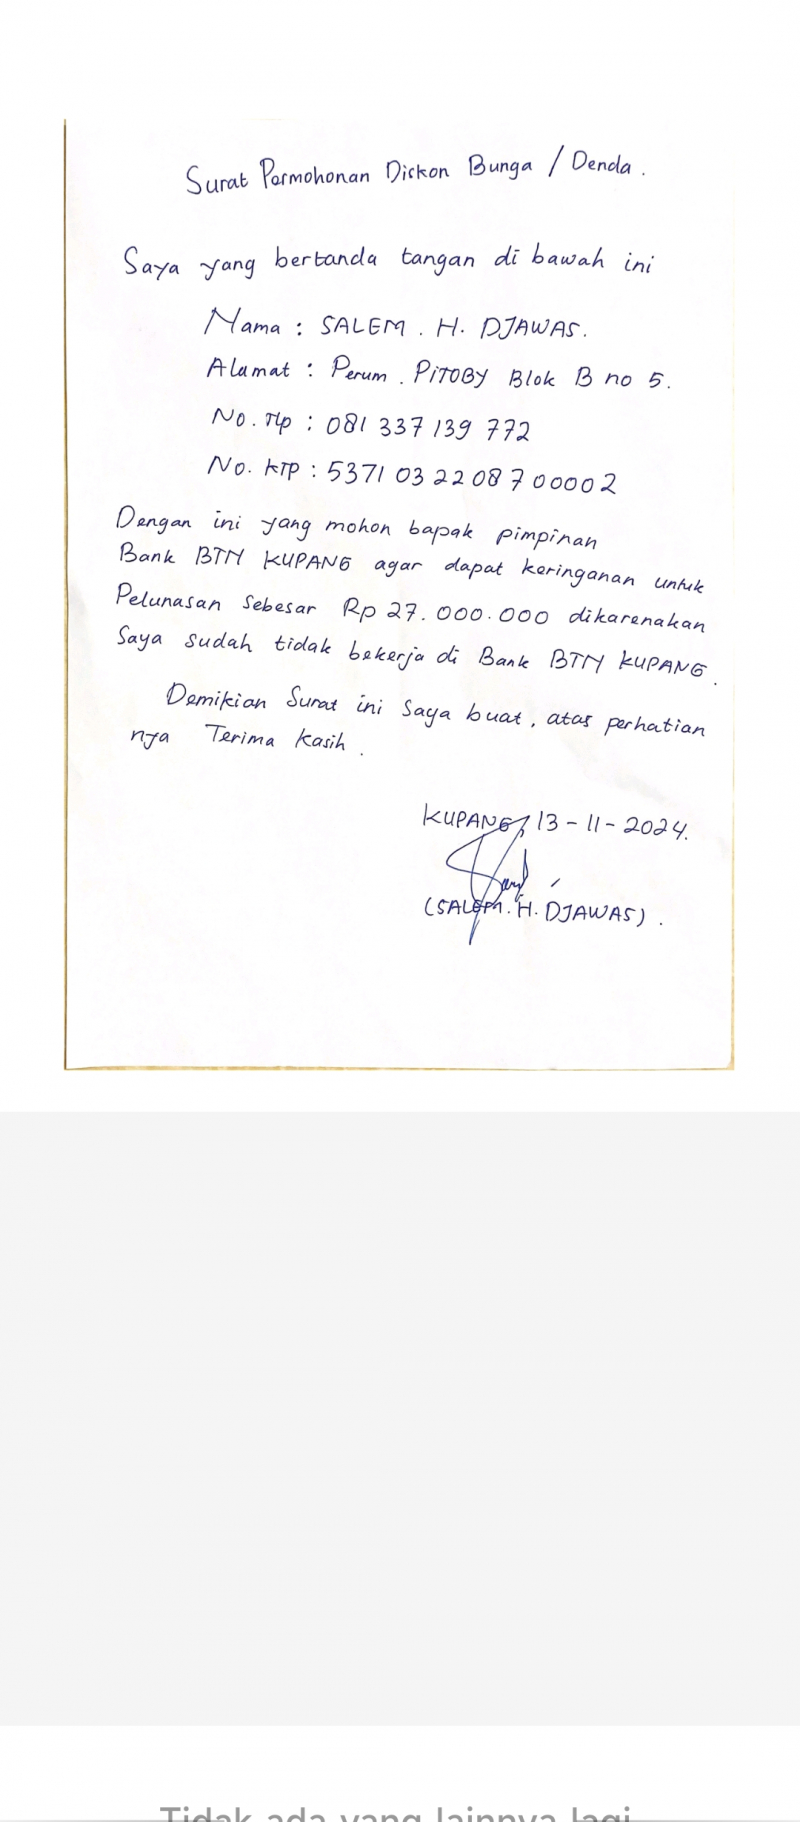 Surat Permohonan Diskon Bunga / Denda.
Saya yang bertanda tangan di bawah ini
Nama : SALEM . H. DJAWAS.
Alamat : Perum . PITOBY Blok B no 5.
No. Tlp : 081 337 139 772
No. KTP : 5371 03 22 08 7 0000 2
Dengan ini yang mohon bapak pimpinan
Bank BTN KUPANG agar dapat keringanan untuk
Pelunasan Sebesar Rp 27.000.000 dikarenakan
Saya sudah tidak bekerja di Bank BTN KUPANG.
Demikian Surat ini Saya buat, atas perhatian
nya Terima Kasih.
KUPANG, 13-11-2024.
(SALEM. H. DJAWAS).
Tidak ada yang lainnya lagi